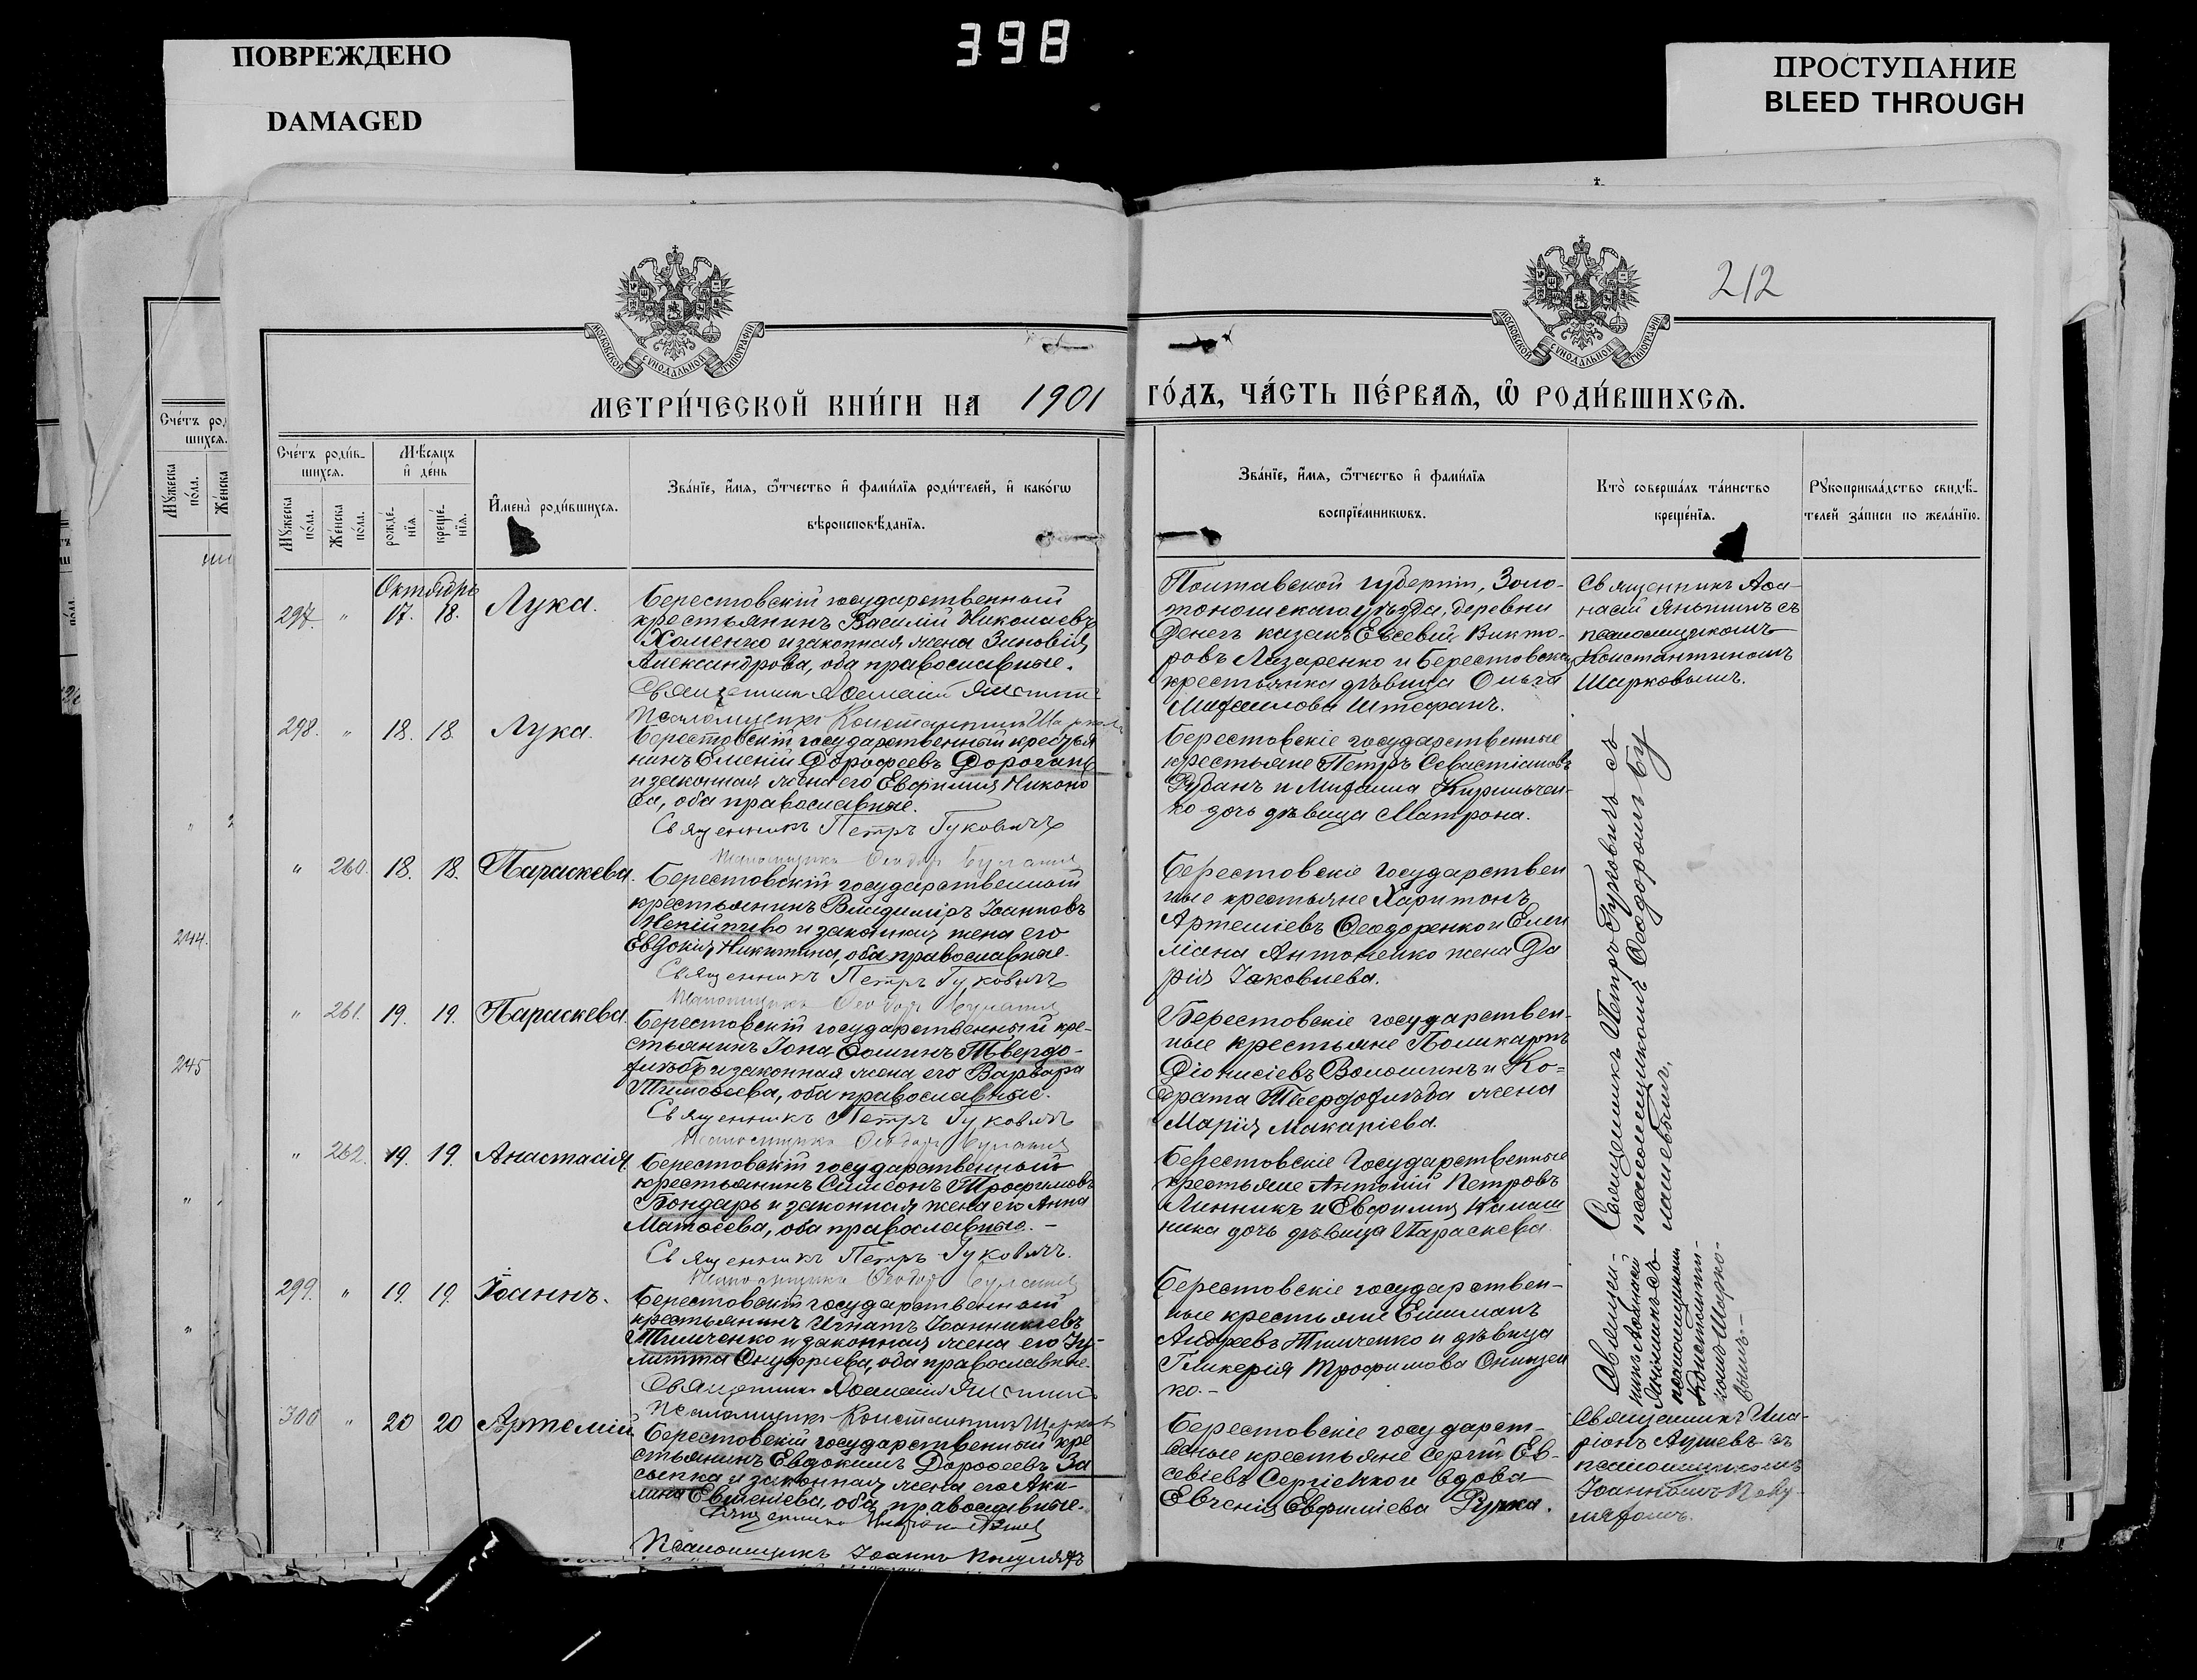 398
ПОВРЕЖДЕНО
DAMAGED
ПРОСТУПАНИЕ
BLEED THROUGH
212
МОСКОВСКОЙ СѴНОДАЛЬНОЙ ТИПОГРАФІИ
МОСКОВСКОЙ СѴНОДАЛЬНОЙ ТИПОГРАФІИ
МЕТРИ́ЧЕСКОЙ КНИ́ГИ НА 1901 ГО́ДЪ, ЧА́СТЬ ПЕ́РВАѦ, Ѡ РОДИ́ВШИХСѦ.
Счетъ родившихся.
Мужеска пола.
Женска пола.
Мѣсяцъ и день
рожденія
крещенія.
Имена родившихся.
Званіе, имя, отчество и фамилія родителей, и какогѡ
вѣроисповѣданія.
Званіе, имя, отчество и фамилія
воспріемниковъ.
Кто совершалъ таинство
крещенія.
Рукоприкладство свидѣ-
телей записи по желанію.
Октябрь
297. " 17. 18. Лука.
Берестовскій государственный
крестьянинъ Василій Николаевъ
Хоменко и законная жена Зиновія
Александрова, оба православные.
Священникъ Аѳанасій
Псаломщикъ Константинъ
Полтавской губерніи, Золо-
тоношскаго уѣзда, деревни
Денегъ казакъ Евсевій Викто-
ровъ Лазаренко и Берестовская
крестьянка дѣвица Ольга
Михаилова Штефанъ.
Священникъ Аѳа-
насій съ
псаломщикомъ
Константиномъ
Шарковымъ.
298. " 18. 18. Лука.
Берестовскій государственный крестья
нинъ Дорофеевъ Дорогань
и законная жена его Евфимія Никоно
ва, оба православные.
Священникъ Петръ Гуковичъ
Псаломщикъ Ѳеодоръ
Берестовскіе государственные
крестьяне Петръ Севастіановъ
Рубанъ и Михаила Кирильчен-
ко дочь дѣвица Матрона.
Священникъ Петръ Гуковичъ съ
псаломщикомъ Ѳеодоромъ Бу
лашевымъ.
" 260. 18. 18. Параскева.
Берестовскій государственный
крестьянинъ Владиміръ Іоанновъ
и законная жена его
Евдокія Никитина, оба православные.
Священникъ Петръ Гуковичъ
Псаломщикъ Ѳеодоръ
Берестовскіе государствен
ные крестьяне Харитонъ
Артеміевъ Ѳеодоренко и Еми
ліана Антоненко жена Да
рія Іаковлева.
" 261. 19. 19. Параскева.
Берестовскій государственный кре-
стьянинъ Іона Ѳоминъ Твердо-
хлѣбъ и законная жена его Варвара
Тимоѳеева, оба православные.
Священникъ Петръ Гуковичъ
Псаломщикъ Ѳеодоръ
Берестовскіе государствен-
ные крестьяне Поликарпъ
Діонисіевъ Волошинъ и Ко-
драта Твердохлѣба жена
Марія Макаріева.
" 262. 19. 19. Анастасія.
Берестовскій государственный
крестьянинъ Симеонъ Трофимовъ
Бондарь и законная жена его Анна
Матѳеева, оба православные.-
Священникъ Петръ Гуковичъ.
Псаломщикъ Ѳеодоръ
Берестовскіе государственные
крестьяне Антоній Петровъ
Линникъ и Евфимія Калаш
ника дочь дѣвица Параскева.
299. " 19. 19. Іоаннъ.
Берестовскій государственный
крестьянинъ Игнатъ Іоанникіевъ
Тимченко и законная жена его Іу-
литта Онуфріева, оба православные.
Священникъ Аѳанасій
Псаломщикъ Константинъ
Берестовскіе государствен-
ные крестьяне
Андреевъ Тимченко и дѣвица
Гликерія Трофимова
ко.-
Священ-
никъ Аѳанасій
съ
псаломщикомъ
Константи-
номъ Шарко-
вымъ.-
300 " 20 20 Артемій
Берестовскій государственный кре
стьянинъ Евдокимъ Дороѳеевъ За
сыпка и законная жена его Аки-
лина Евменіева, оба православные.
Псаломщикъ Іоаннъ
Берестовскіе государст-
венные крестьяне Сергій Ев-
севіевъ Сергіенко и вдова
Евгенія Евфиміева Ручка.
Священникъ Ила-
ріонъ съ
псаломщикомъ
Іоанномъ
Счетъ роди
шихся.
Мужеска пола.
Женска
244.
245